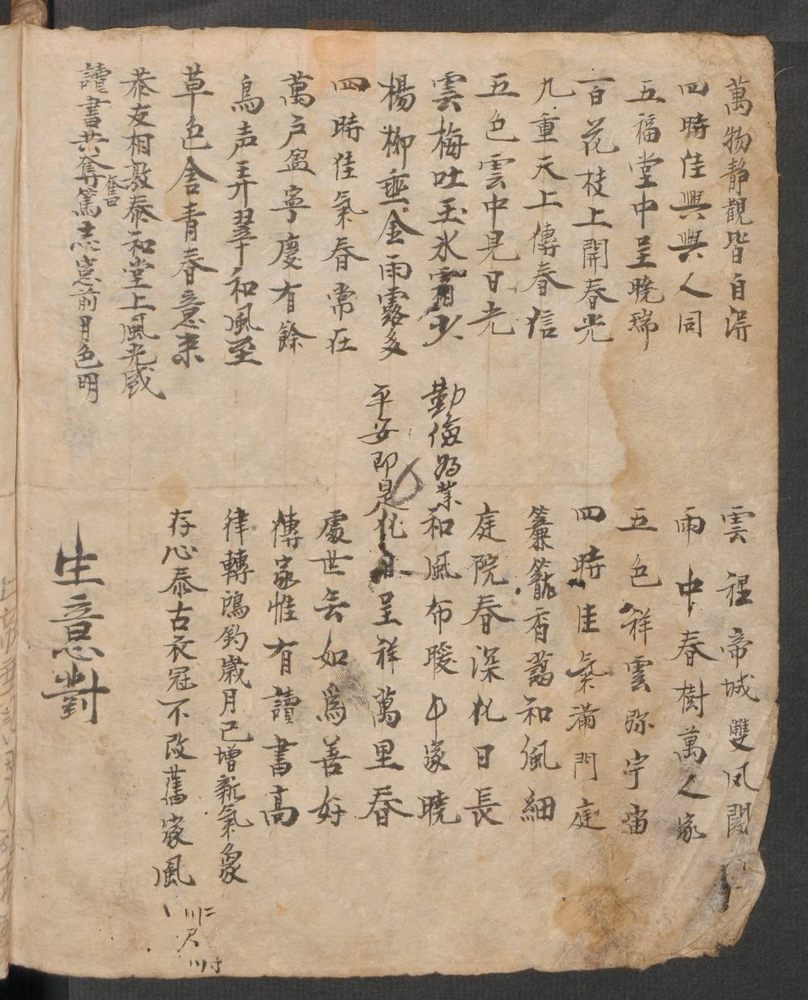 萬物靜觀皆自淂
四時佳興與人同
五福堂中呈曉瑞
百花枝上開春光
九重天上傳春信
五色雲中見日光
雲梅吐玉氷霜少
楊柳垂金雨露多
四時佳氣春常在
萬戶盈寧慶有餘
鳥声弄翠和風至
草色含青春意来
恭友相敦泰和堂上風光盛
讀書共奮篤志窓前月色明
奮
勤儉為業
平安即是
雲裡帝城雙凤闕
雨中春樹萬人家
五色祥雲弥宇宙
四時佳氣滿門庭
簾籠香靄和風細
庭院春深化日長
和風布暖千家曉
化日呈祥萬里春
處世無如為善好
傳家惟有讀書高
律轉鴻鈞歲月已增新氣象
存心泰古衣冠不改舊家風
生意對